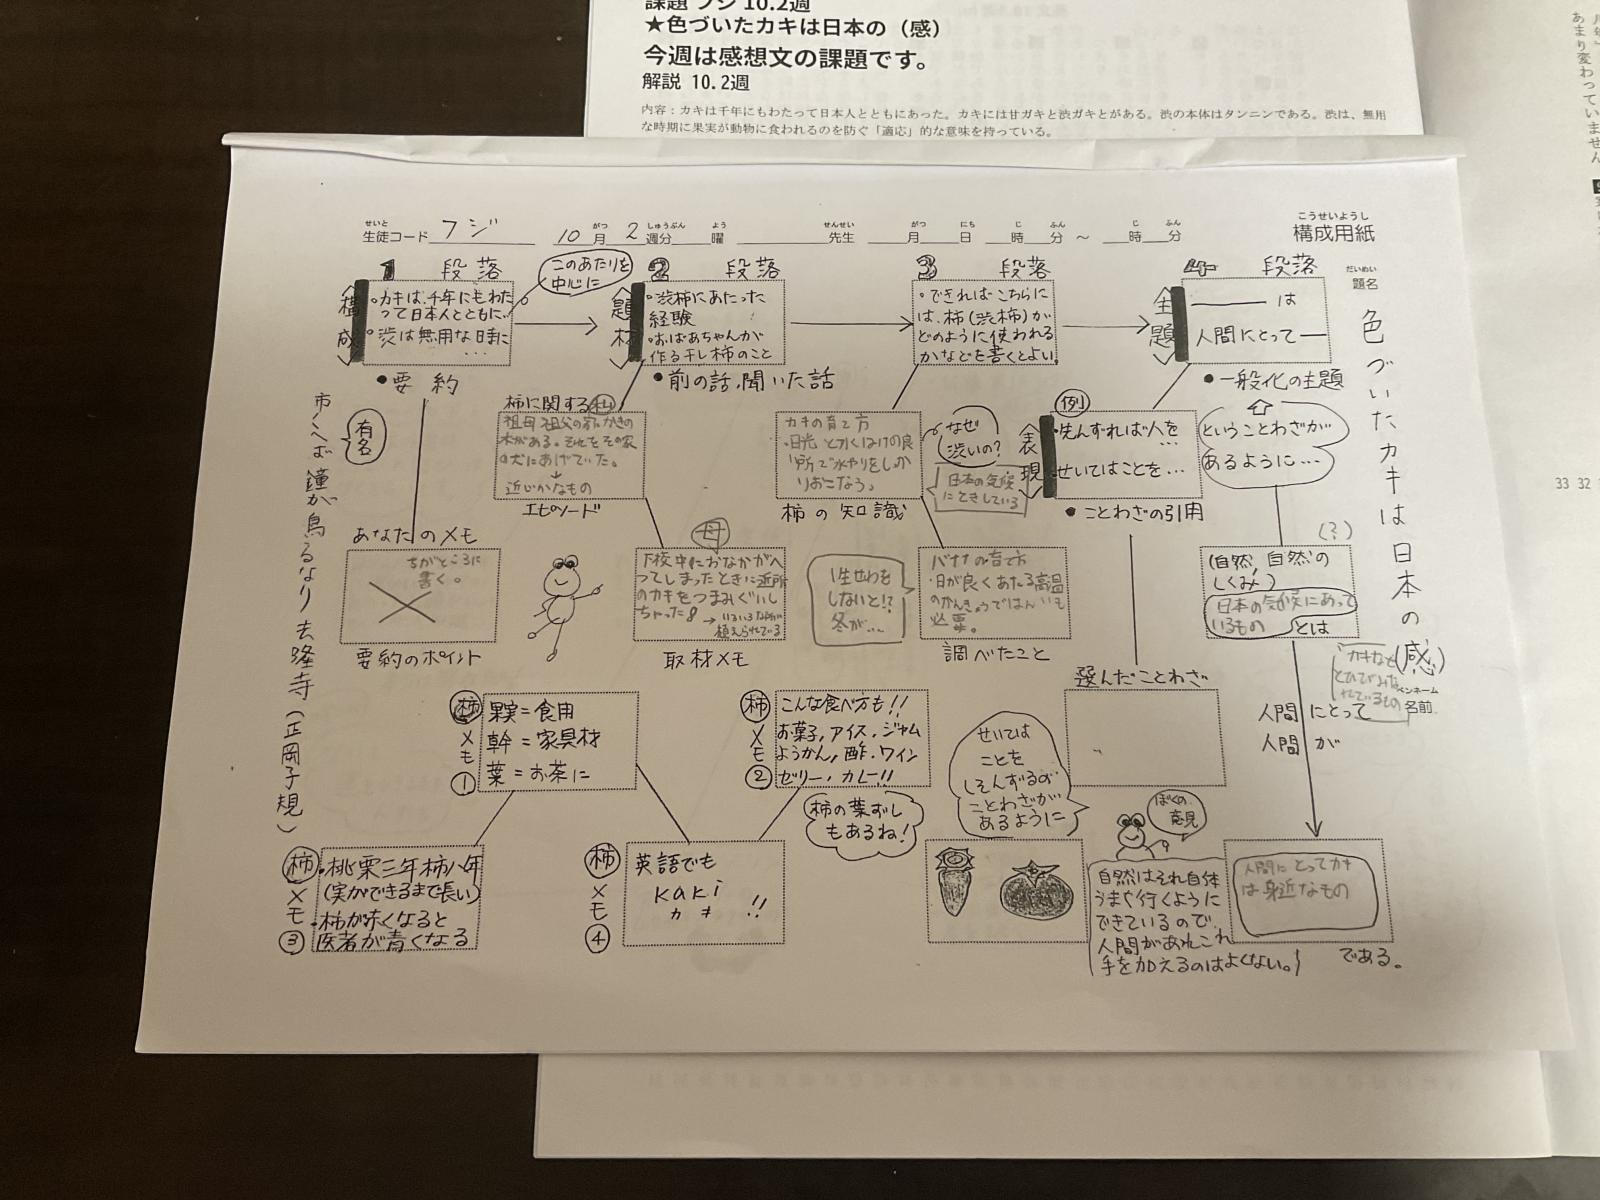 課題 フジ 10.2週
★色づいたカキは日本の（感）
今週は感想文の課題です。
解説 10.2週
内容：カキは千年にもわたって日本人とともにあった。カキには甘ガキと渋ガキとがある。渋の本体はタンニンである。渋は、無用
な時期に果実が動物に食われるのを防ぐ「適応」的な意味を持っている。
あまり変わっていません
33 32
こうせいようし
構成用紙
せいと
生徒コード フジ
10月 2週分 曜 先生 月 日 時 分 ～ 時 分
がつ しゅうぶん よう せんせい がつ にち じ ふん じ ふん
だいめい
題名
色づいたカキは日本の(感)
ペンネーム
名前
1 段落
構成
・カキは、千年にもわた
って日本人とともに…
・渋は無用な日時に
…
このあたりを
中心に
・要約
2 段落
題材
・渋柿にあたった
経験
・おばあちゃんが
作る干し柿のこと
・前の話、聞いた話
3 段落
・できればこちらに
は、柿(渋柿)が
どのように使われる
かなどを書くとよい。
4 段落
主題
――は
人間にとって―
・一般化の主題
市人へば鐘が鳥るなり 去隆寺(正岡子規)
有名
柿に関する 私
祖母祖父の家にかきの
木がある。それをその家
の犬にあげていた。
↓
近じかなもの
エピソード
カキの育て方
・日光と水はけの良
い所で水やりをしっか
りおこなう。
柿の知識
なぜ
渋いの?
日本の気候
にてきしている
例
表現
・先んずれば人を
…
せいてはことを…
・ことわざの引用
ということわざが
あるように…
あなたのメモ
ちがところに
書く。
要約のポイント
母
下校中におなかがへ
ってしまったときに近所
のカキをつまみぐいし
ちゃった
→いろいろな所に
植えられている
取材メモ
1生せわを
しないと!?
冬が…
バナナの育て方
・日が良くあたる高温
のかんきょうではんいも
必要。
調べたこと
選んだことわざ
(?)
(自然、自然の
しくみ)
日本の気候にあって
いるもの とは
人間にとって
人間が
柿メモ①
果実=食用
幹=家具材
葉=お茶に
柿メモ②
こんな食べ方も!!
お菓子,アイス,ジャム
ようかん,酢,ワイン
ゼリー,カレー!!
柿の葉ずし
もあるね!
せいては
ことを
しそんずるが
ことわざが
あるように
ぼくの
意見
柿メモ③
・桃栗三年柿八年
(実ができるまで長い)
・柿が赤くなると
医者が青くなる
柿メモ④
英語でも
kaki
カキ !!
自然はそれ自体
うまく行くように
できているので、
人間があれこれ
手を加えるのはよくない。
人間にとってカキ
は身近なもの
である。